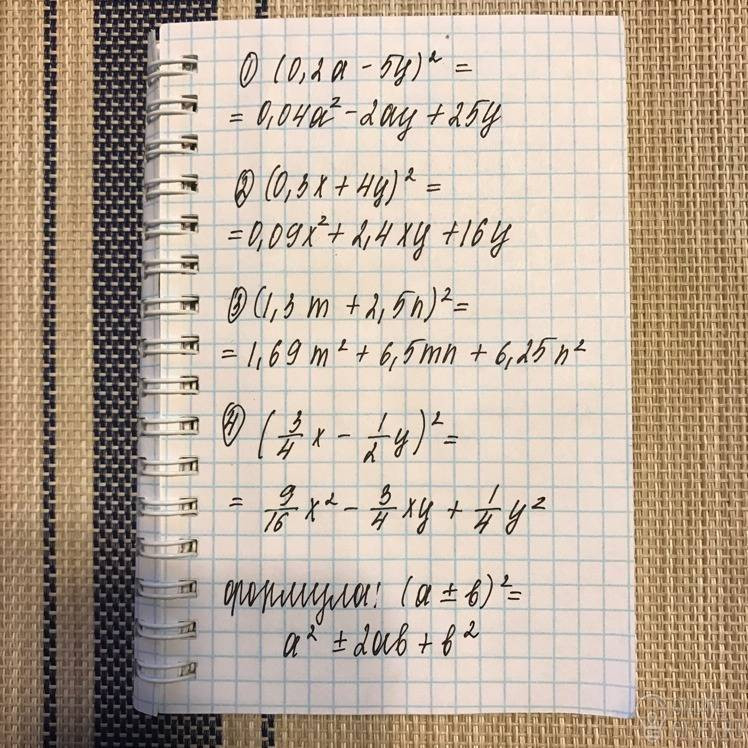 ① (0,2a - 5y)² =
= 0,04a² - 2ay + 25y
② (0,3x + 4y)² =
= 0,09x² + 2,4xy + 16y
③ (1,3m + 2,5n)² =
= 1,69m² + 6,5mn + 6,25n²
④ (3/4 x - 1/2 y)² =
= 9/16 x² - 3/4 xy + 1/4 y²
формула: (a ± b)² =
a² ± 2ab + b²